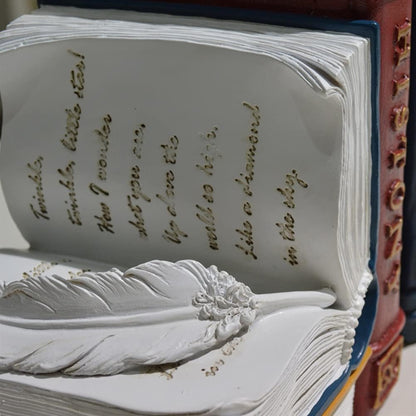 Twinkle,
twinkle, little star!
How I wonder
what you are,
Up above the
world so high,
Like a diamond
in the sky.